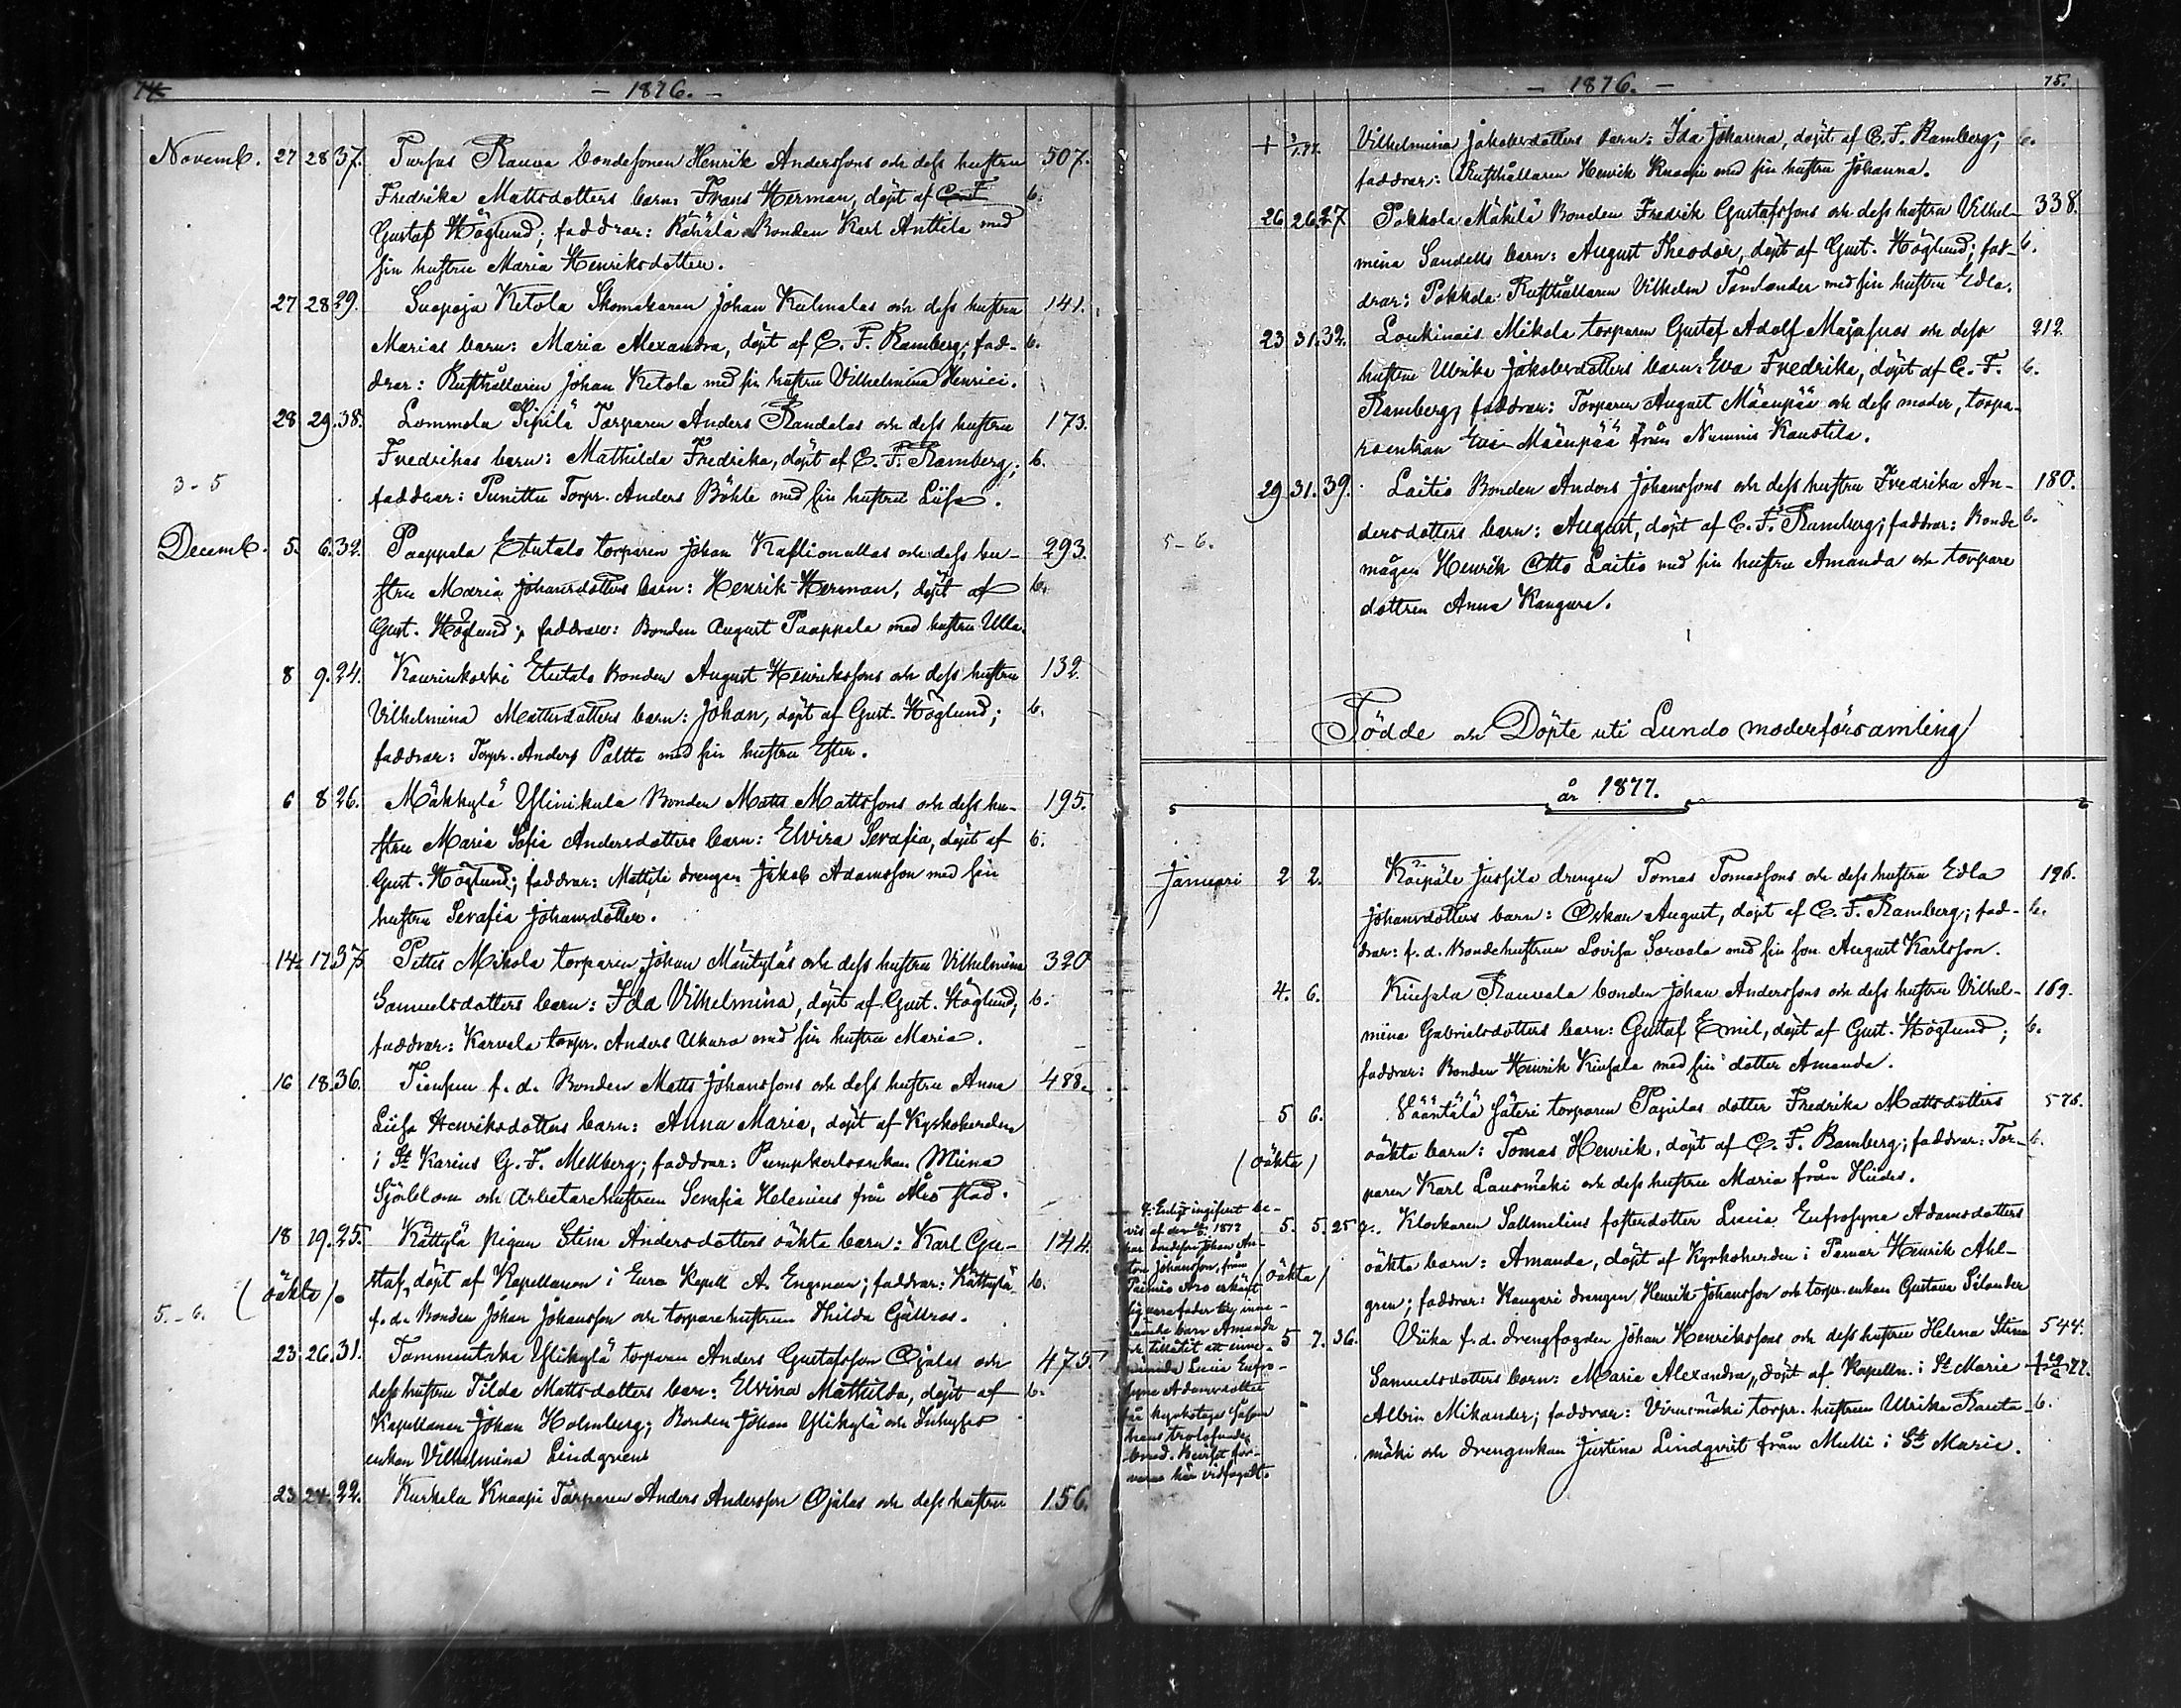 74.
- 1876. -
Novemb. 27 28 37. Pursus Rauva bondesonen Henrik Anderssons och dess hustru 507.
Fredrika Mattsdotters barn: Frans Herman, döpt af C. F. b.
Gustaf Höglund; faddrar: Bonden Karl Anttila med
sin hustru Maria Henriksdotter.
27 28 29. Suapoja Ketola Skomakaren Johan Kulmalas och dess hustru 141.
Marias barn: Maria Alexandra, döpt af C. F. Ramberg; fad- b.
drar: Rusthållaren Johan Ketola med sin hustru Vilhelmina Henrici.
28 29. 38. Lommola Sipilä Torparen Anders Randalas och dess hustru 173.
Fredrikas barn: Mathilda Fredrika, döpt af C. F. Ramberg; b.
3 - 5 faddrar: Punittu Torpr. Anders Böhle med sin hustru Liisa.
Decemb. 5. 6. 32. Paappala Etutalo torparen Johan Kaslionallas och dess hu- 293.
stru Maria Johansdotters barn: Henrik Herman, döpt af b.
Gust. Höglund; faddrar: Bonden August Paappala med hustru Ulla.
8 9. 24. Kaurinkoski Etutalo Bonden August Henrikssons och dess hustru 132.
Vilhelmina Mattsdotters barn: Johan, döpt af Gust. Höglund; b.
faddrar: Torpr. Anders Paltta med sin hustru Ester.
6 8 26. Mäkkylä Ylinikula Bonden Matts Mattssons och dess hu- 195.
stru Maria Sofia Andersdotters barn: Elvira Serafia, döpt af b.
Gust. Höglund; faddrar: Mattila drengen Jakob Adamsson med sin
hustru Serafia Johansdotter.
14. 17. 37. Pettis Mikola torparen Johan Mäntyläs och dess hustru Vilhelmina 320
Samuelsdotters barn: Ida Vilhelmina, döpt af Gust. Höglund; b.
faddrar: Karvala torpr. Anders Ukura med sin hustru Maria.
16 18. 36. Tiensuu f. d. Bonden Matts Johanssons och dess hustru Anna 488.
Liisa Henriksdotters barn: Anna Maria, döpt af Kyrkoherden
i St Karins G. F. Mellberg; faddrar: Miina
Sjöblom och Arbetarehustrun Serafia Helenius från Åbo stad.
18 19. 25. Kättylä pigan Stina Andersdotters oäkta barn: Karl Gu- 144.
(oäkta). staf, döpt af Kapellanen i Eura Kapell A. Engman; faddrar: Kättylä b.
5. - 6. f. d. Bonden Johan Johansson och torparehustrun Thilda Gällros.
23 26. 31. Tammentaka Ylikylä torparen Anders Gustafsson Ojalas och 475
dess hustru Tilda Mattsdotters barn: Elvina Mathilda, döpt af b.
Kapellanen Johan Holmberg; Bonden Johan Ylikylä och Inhyses
enkan Vilhelmina Lindgren
23 24. 22. Kurkela Knaapi Torparen Anders Andersson Ojalas och dess hustru 156.
- 1876. -
75.
Vilhelmina Jakobsdotters barn: Ida Johanna, döpt af C. F. Ramberg; b.
faddrar: Rusthållaren Henrik Knaapi med sin hustru Johanna.
26 26. 27. Pokkola Mäkilä Bonden Fredrik Gustafssons och dess hustru Vilhel- 338.
mina Sandells barn: August Theodor, döpt af Gust. Höglund; fad- b.
drar: Pokkola Rusthållaren Vilhelm Tamlander med sin hustru Edla.
23 31. 32. Loukinais Mikola torparen Gustaf Adolf Majasuos och dess 212
hustru Ulrika Jakobsdotters barn: Eva Fredrika, döpt af C. F. b.
Ramberg; faddrar: Torparen August Mäenpää och dess moder, torpa-
reenkan Eva Mäenpää från Nummis Kaustila.
29 31. 39. Laitio Bonden Anders Johanssons och dess hustru Fredrika An- 180.
dersdotters barn: August, döpt af C. F. Ramberg; faddrar: Bonde b.
5 - 6. mågen Henrik Otto Laitio med sin hustru Amanda och torpare
dottren Anna Kangare.
Födde och Döpte uti Lundo moderförsamling
år 1877.
Januari 2 2. Käipälä Jussila drengen Tomas Tomassons och dess hustru Edla 196.
Johansdotters barn: Oskar August, döpt af C. F. Ramberg; fad- b.
drar: f. d. Bondehustrun Lovisa Sorvala med sin son August Karlsson.
4. 6. Kiusala Rauvala bonden Johan Anderssons och dess hustru Vilhel- 169.
mina Gabrielsdotters barn: Gustaf Emil, döpt af Gust. Höglund; b.
faddrar: Bonden Henrik Kiusala med sin dotter Amanda.
5 6. Vääntälä Säteri torparen Papilas dotter Fredrika Mattsdotters 576.
(oäkta) oäkta barn: Tomas Henrik, döpt af C. F. Ramberg; faddrar: Tor- b.
paren Karl Lausmäki och dess hustru Maria från Hiides.
5. 5. 25 Klockaren Sallmelius fosterdotter Lucia Eufrosyna Adamsdotters
(oäkta) oäkta barn: Amanda, döpt af Kyrkoherden i Pemar Henrik Ahl-
gren; faddrar: Kangari drengen Henrik Johansson och torpr. enkan Gustava Silander
Enligt ingifvet be-
vis af den 1877
har bondeson Johan An-
ton Johansson, från
Paimio Aro erkänt
sig vara fader till inne-
nämnde barn Amanda
och tillåtit att inne-
nämnda Lucia Eufro-
syna Adamsdotter
får kyrkotagas såsom
hans trolofvade
brud. Beviset för-
varas här vidfogadt.
5 7. 36. Viika f. d. drengfogden Johan Henrikssons och dess hustru Helena Stina 544.
Samuelsdotters barn: Maria Alexandra, döpt af Kapelln. i St Marie 77.
Albin Mikander; faddrar: Virusmäki torpr. hustrun Ulrika Rauta- b.
mäki och drengenkan Justina Lindqvist från Mulli i St Marie.